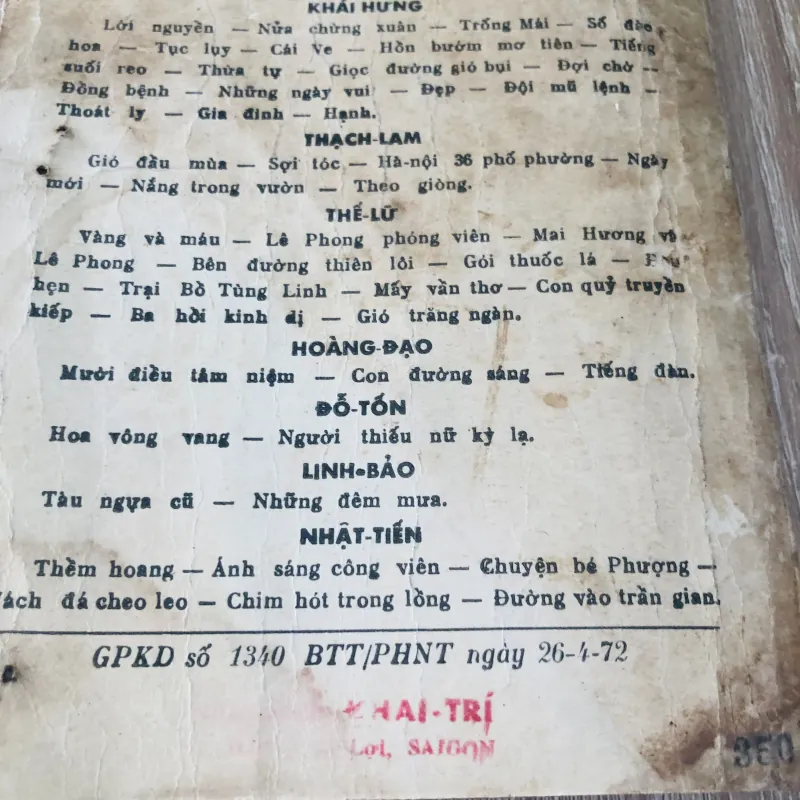 KHÁI HƯNG
Lời nguyền — Nửa chừng xuân — Trống Mái — Số đào
hoa — Tục lụy — Cái Ve — Hồn bướm mơ tiên — Tiếng
suối reo — Thừa tự — Giọc đường gió bụi — Đợi chờ —
Đồng bệnh — Những ngày vui — Đẹp — Đội mũ lệnh —
Thoát ly — Gia đình — Hạnh.
THẠCH-LAM
Gió đầu mùa — Sợi tóc — Hà-nội 36 phố phường — Ngày
mới — Nắng trong vườn — Theo giòng.
THẾ-LỮ
Vàng và máu — Lê Phong phóng viên — Mai Hương và
Lê Phong — Bên đường thiên lôi — Gói thuốc lá —
hẹn — Trại Bồ Tùng Linh — Mấy vần thơ — Con quỷ truyền
kiếp — Ba hồi kinh dị — Gió trăng ngàn.
HOÀNG-ĐẠO
Mười điều tâm niệm — Con đường sáng — Tiếng đàn.
ĐỖ-TỐN
Hoa vông vang — Người thiếu nữ kỳ lạ.
LINH-BẢO
Tàu ngựa cũ — Những đêm mưa.
NHẬT-TIẾN
Thềm hoang — Ánh sáng công viên — Chuyện bé Phượng —
Vách đá cheo leo — Chim hót trong lồng — Đường vào trần gian.
GPKD số 1340 BTT/PHNT ngày 26-4-72
KHAI-TRÍ
Lợi, SAIGON
350